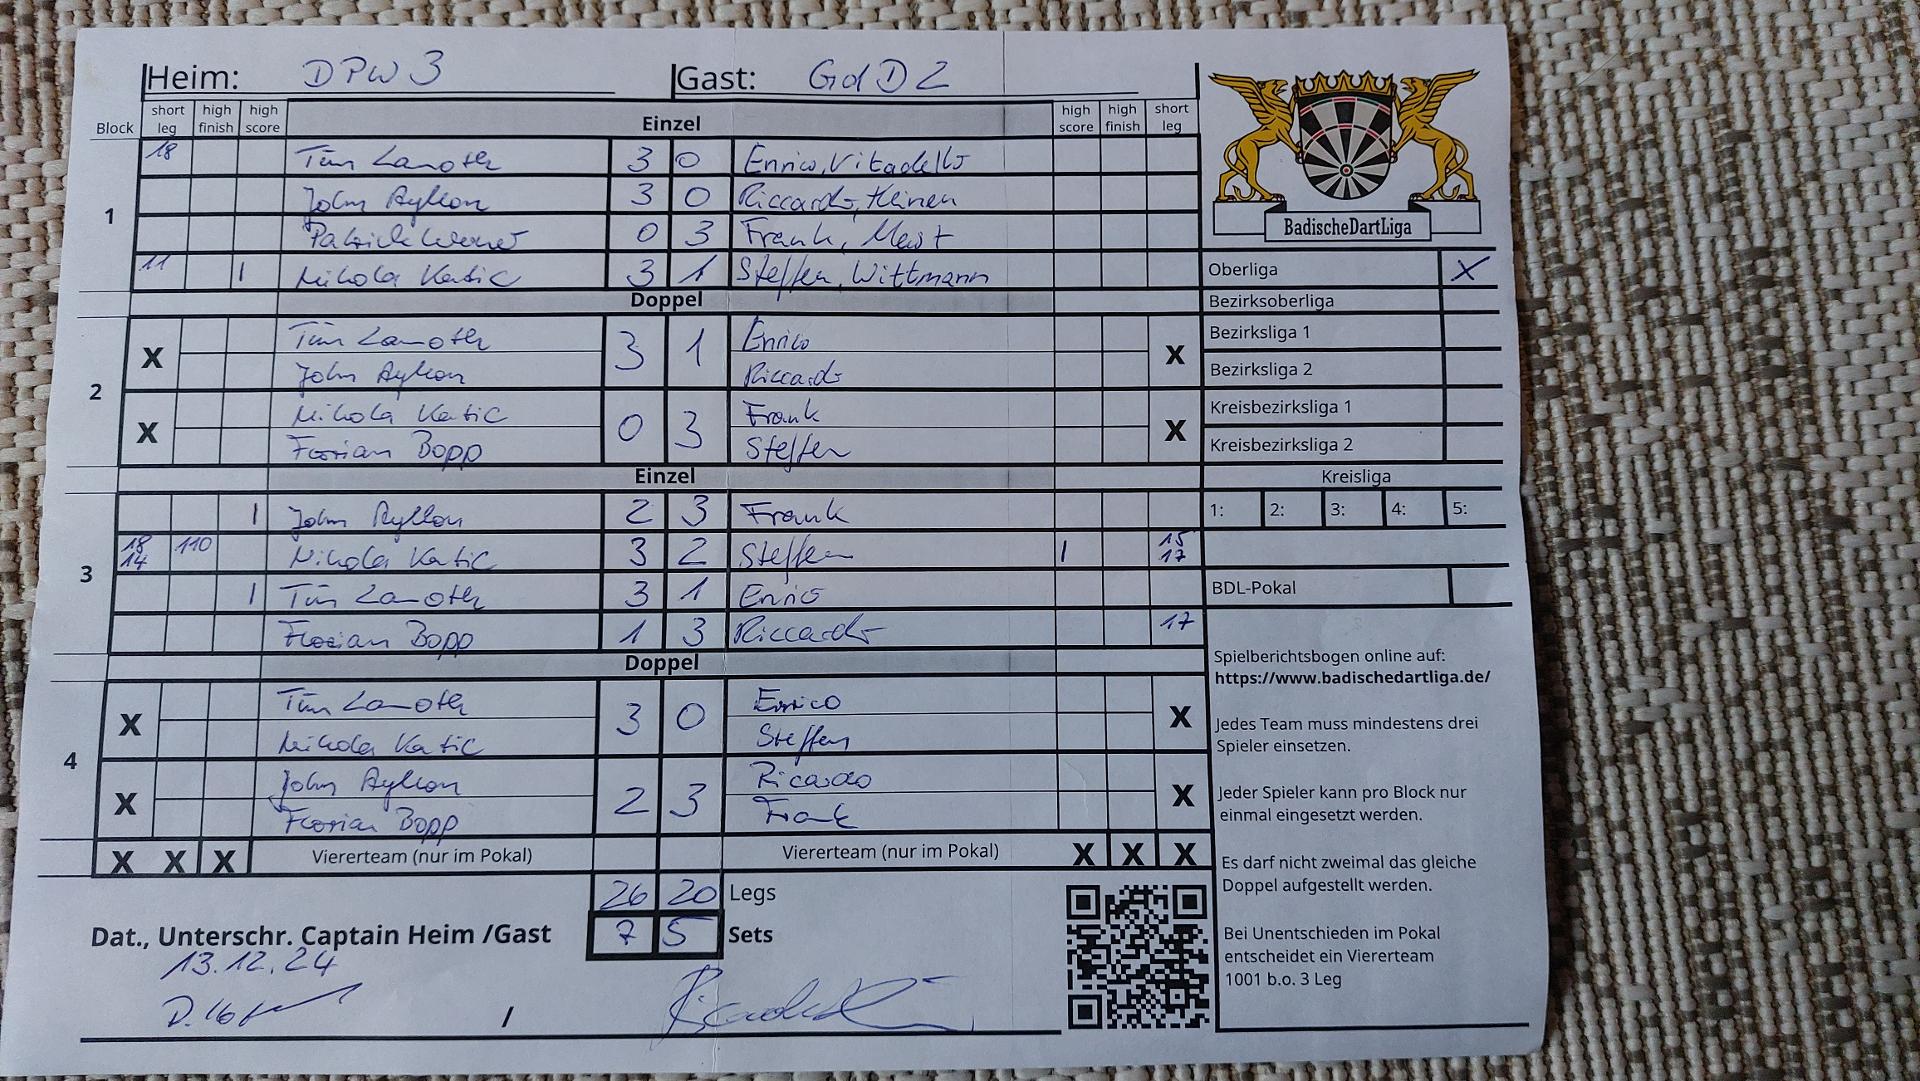 Heim: DPW 3 Gast: GdD 2
Block short leg high finish high score Einzel high score high finish short leg
18 Tim Lamoth 3 0 Enrico, Vitadello
1 John Ayllon 3 0 Riccardo, Heinen
Patrick Werner 0 3 Frank, Mast
11 | Nikola Katic 3 1 Steffen, Wittmann
Doppel
2
X Tim Lamoth 3 1 Enrico X
John Ayllon Riccardo
X Nikola Katic 0 3 Frank X
Florian Bopp Steffen
Einzel
3
| John Ayllon 2 3 Frank
18 14 110 Nikola Katic 3 2 Steffen | 15 17
| Tim Lamoth 3 1 Enrico
Florian Bopp 1 3 Riccardo 17
Doppel
4
X Tim Lamoth 3 0 Enrico X
Nikola Katic Steffen
X John Ayllon 2 3 Ricardo X
Florian Bopp Frank
X X X Vierteam (nur im Pokal) Viererteam (nur im Pokal) X X X
26 20 Legs
Dat., Unterschr. Captain Heim /Gast 7 5 Sets
13.12.24
/
BadischeDartLiga
Oberliga X
Bezirksoberliga
Bezirksliga 1
Bezirksliga 2
Kreisbezirksliga 1
Kreisbezirksliga 2
Kreisliga
1: 2: 3: 4: 5:
BDL-Pokal
Spielberichtsbogen online auf:
https://www.badischedartliga.de/
Jedes Team muss mindestens drei
Spieler einsetzen.
Jeder Spieler kann pro Block nur
einmal eingesetzt werden.
Es darf nicht zweimal das gleiche
Doppel aufgestellt werden.
Bei Unentschieden im Pokal
entscheidet ein Viererteam
1001 b.o. 3 Leg